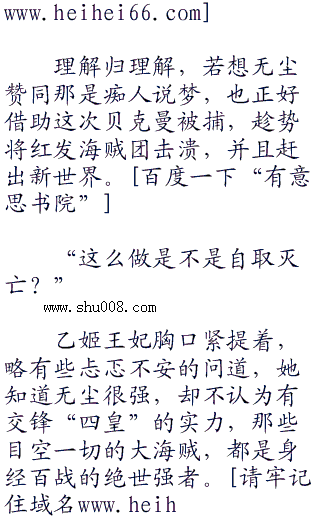 www.heihei66.com]
理解归理解，若想无尘
赞同那是痴人说梦，也正好
借助这次贝克曼被捕，趁势
将红发海贼团击溃，并且赶
出新世界。[百度一下“有意
思书院”]
“这么做是不是自取灭
亡？”
www.shu008.com
乙姬王妃胸口紧提着，
略有些忐忑不安的问道，她
知道无尘很强，却不认为有
交锋“四皇”的实力，那些
目空一切的大海贼，都是身
经百战的绝世强者。[请牢记
住域名www.heih